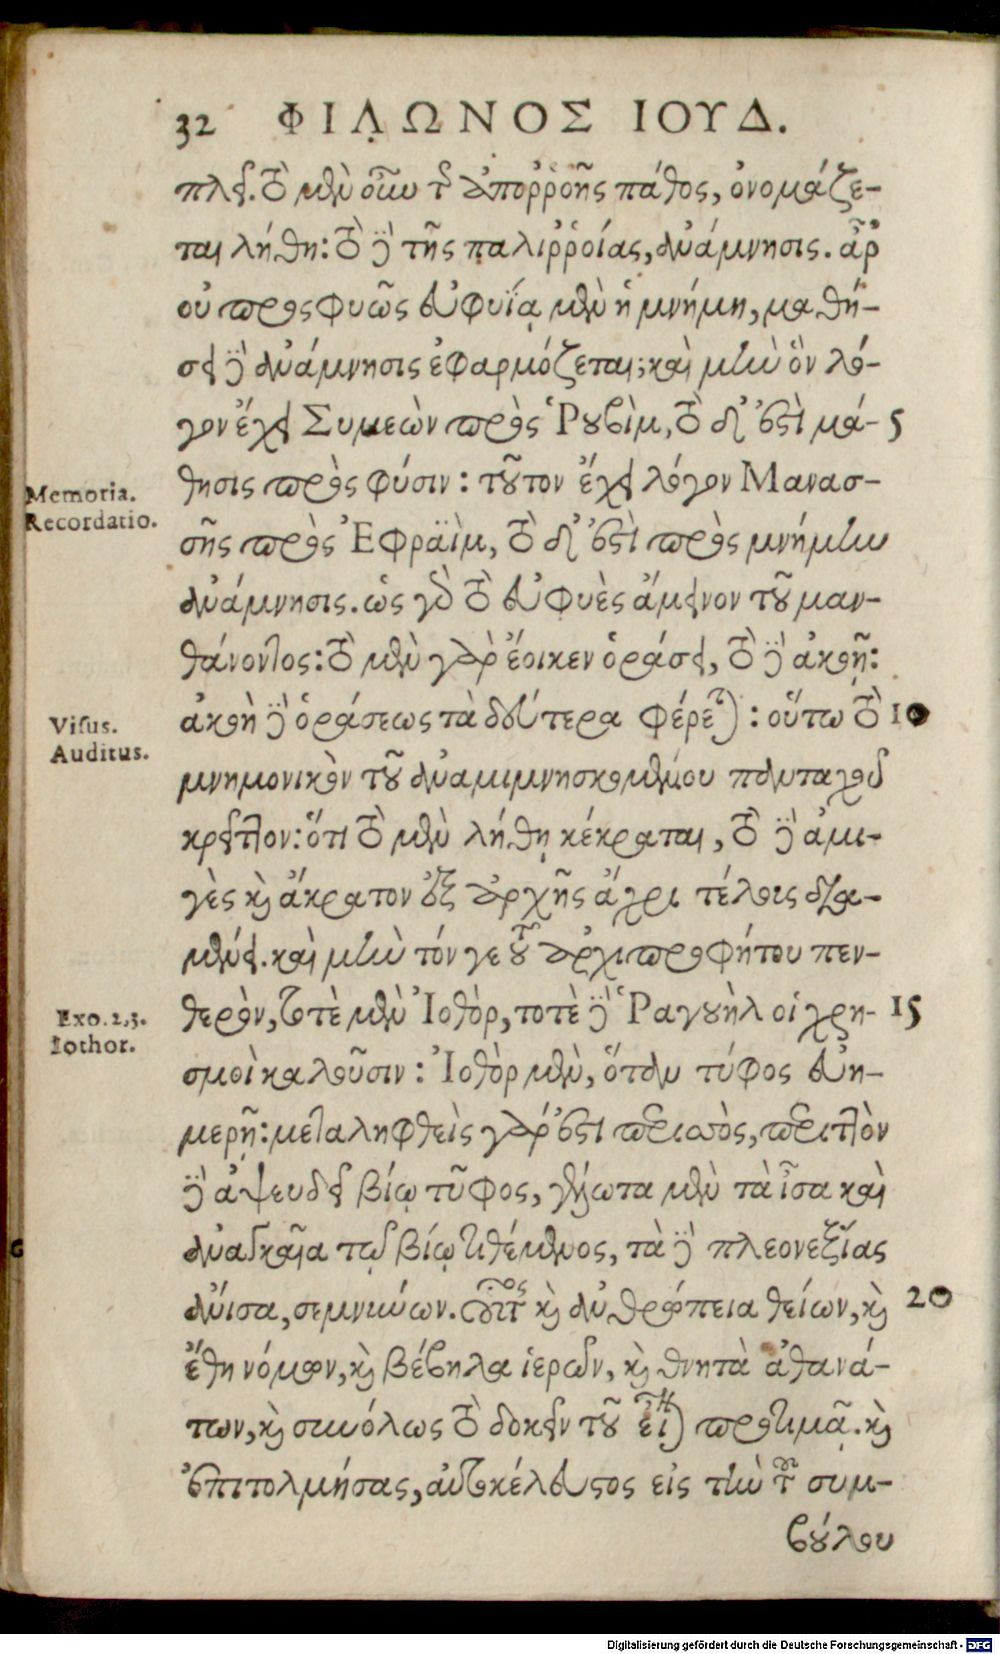 32 ΦΙΛΩΝΟΣ ΙΟΥΔ.
πλεῖ. τὸ μὲν οὖν τῆς ἀποῤῥοῆς πάθος, ὀνομάζε-
ται λήθη: τὸ δὲ τῆς παλιῤῥοίας, ἀνάμνησις. ἆρ
οὐ προσφυῶς εὐφυΐᾳ μὲν ἡ μνήμη, μαθή-
σει δὲ ἀνάμνησις ἐφαρμόζεται; καὶ μὴν ὃν λό-
γον ἔχει Συμεὼν πρὸς Ῥουβὶμ, τὸ δ' ἐστὶ μά- 5
θησις πρὸς φύσιν: τοῦτον ἔχει λόγον Μανασ-
Memoria.
Recordatio.
σῆς πρὸς Ἐφραϊὶμ, τὸ δ' ἐστὶ πρὸς μνήμην
ἀνάμνησις. ὡς γὰρ τὸ εὐφυὲς ἄμεινον τοῦ μαν-
θάνοντος: τὸ μὲν γὰρ ἔοικεν ὁράσει, τὸ δὲ ἀκοῇ:
ἀκοὴ δὲ ὁράσεως τὰ δεύτερα φέρεται: οὕτω τὸ 10
Visus.
Auditus.
μνημονικὸν τοῦ ἀναμιμνησκομένου πανταχοῦ
κρεῖττον: ὅτι τὸ μὲν λήθῃ κέκραται, τὸ δὲ ἀμι-
γὲς καὶ ἄκρατον ἐξ ἀρχῆς ἄχρι τέλους δια-
μένει. καὶ μὴν τόν γε τοῦ ἀρχιπροφήτου πεν-
θερὸν, τοτὲ μὲν Ἰοθὸρ, ποτὲ δὲ Ῥαγουὴλ οἱ χρη- 15
Exo. 2,3.
Iothor.
σμοὶ καλοῦσιν: Ἰοθὸρ μὲν, ὅταν τύφος εὐη-
μερῇ: μεταληφθεὶς γάρ ἐστι περισσὸς, περιττὸν
δὲ ἀψευδεῖ βίῳ τῦφος, γέλωτα μὲν τὰ ἶσα καὶ
ἀναγκαῖα τῷ βίῳ τιθέμενος, τὰ δὲ πλεονεξίας
ἄνισα, σεμνύων. οὗτος καὶ ἀνθρώπεια θείων, καὶ 20
ἔθη νόμων, καὶ βέβηλα ἱερῶν, καὶ θνητὰ ἀθανά-
των, καὶ συνόλως τὸ δοκεῖν τοῦ εἶναι προτιμᾷ. καὶ
ἐπιτολμήσας, αὐτοκέλευστος εἰς τὴν τοῦ συμ-
βούλου
Digitalisierung gefördert durch die Deutsche Forschungsgemeinschaft - DFG